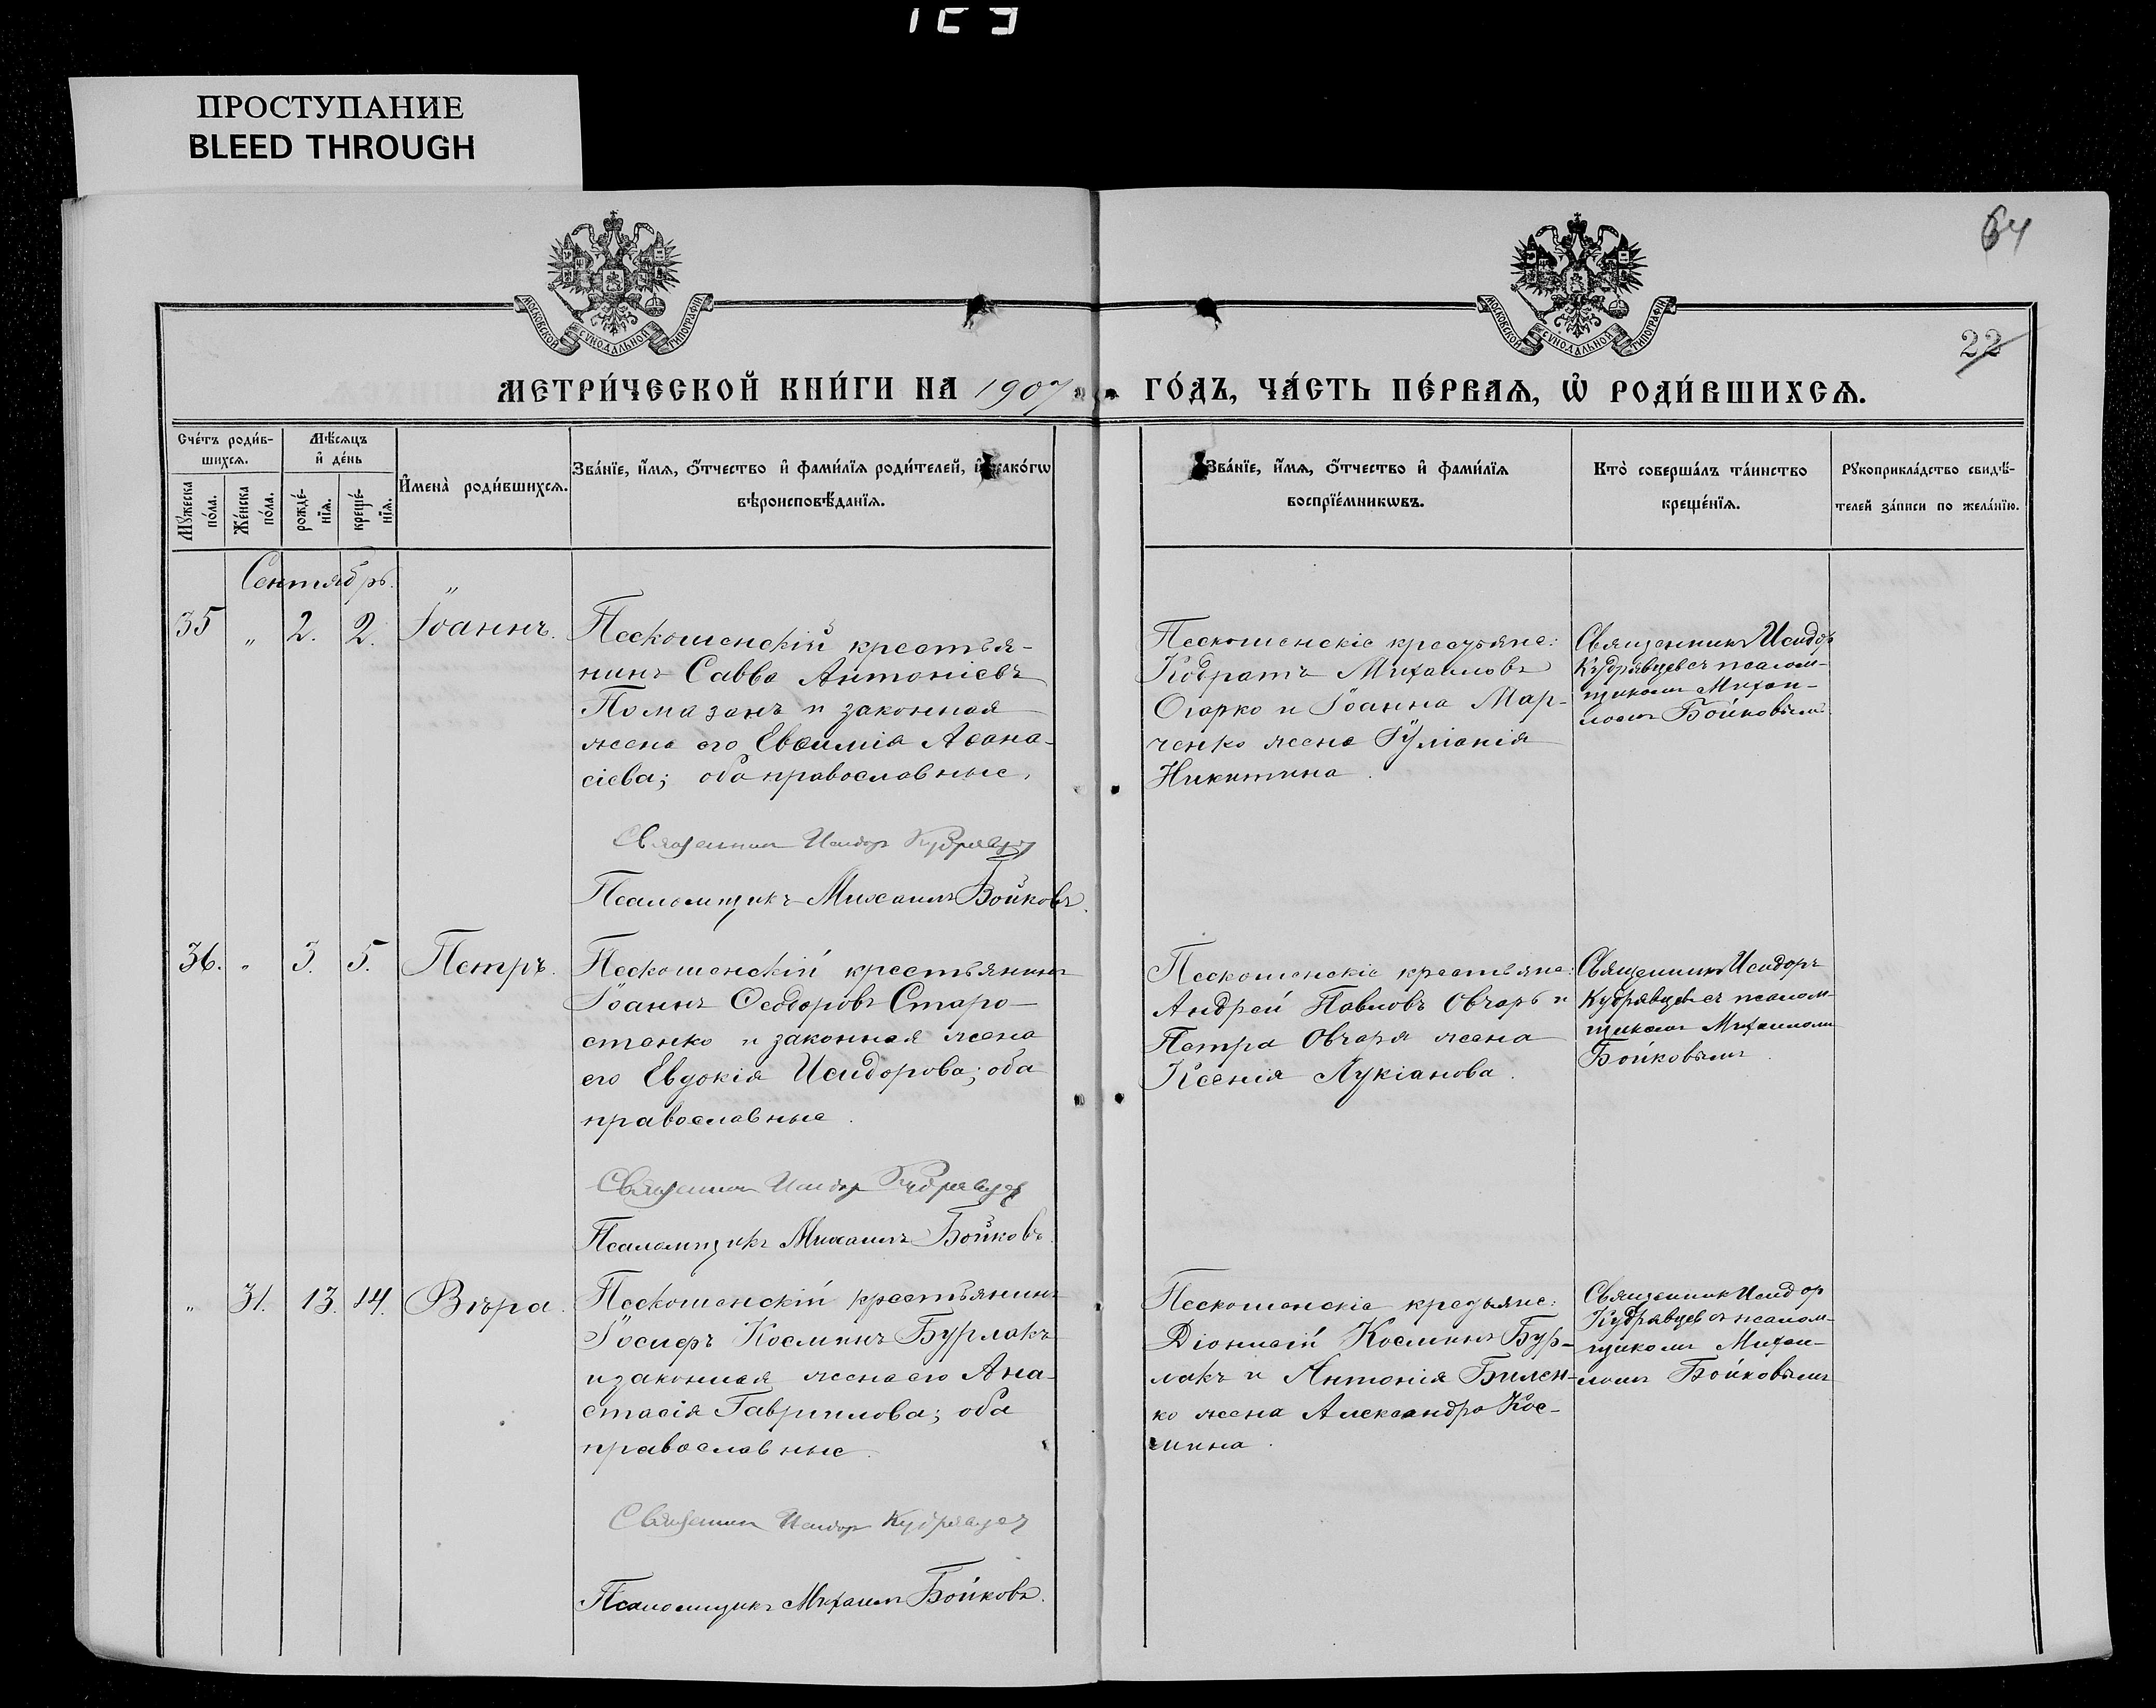 ПРОСТУПАНИЕ
BLEED THROUGH
64
МОСКОВСКОЙ СѴНОДАЛЬНОЙ ТИПОГРАФІИ
МОСКОВСКОЙ СѴНОДАЛЬНОЙ ТИПОГРАФІИ
22
МЕТРИ́ЧЕСКОЙ КНИ́ГИ НА 1907 ГО́ДЪ, ЧА́СТЬ ПЕ́РВАѦ, Ѡ҆ РОДИ́ВШИХСѦ.
Сче́тъ роди́в-
шихсѧ.
Мѣ́сѧцъ
и҆ де́нь
И҆мена̀ роди́вшихсѧ.
Зва́нїе, и҆́мѧ, ѻ҆́тчество и҆ фами́лїѧ роди́телей, и҆ како́гѡ
вѣроисповѣ́данїѧ.
Зва́нїе, и҆́мѧ, ѻ҆́тчество и҆ фами́лїѧ
воспрїе́мникѡвъ.
Кто̀ соверша́лъ та́инство
креще́нїѧ.
Рꙋкоприкла́дство свидѣ́-
телей за́писи по жела́нїю.
Мꙋ́жеска
по́ла.
Же́нска
по́ла.
рожде́-
нїѧ.
креще́-
нїѧ.
Сентябрь.
35 „ 2. 2. Іоаннъ.
Пескошенскій крестья-
нинъ Савва Антоніевъ
Помазанъ и законная
жена его Евѳимія Аѳана-
сіева; оба православные.
Священникъ Исидор Кудрявцев
Псаломщикъ Михаилъ Бойковъ.
Пескошенскіе крестьяне:
Кодратъ Михаиловъ
Огарко и Іоанна Мар-
ченко жена Іуліанія
Никитина.
Священникъ Исидоръ
Кудрявцевъ съ псалом-
щикомъ Михаи-
ломъ Бойковымъ
36. „ 3. 5. Петръ.
Пескошенскій крестьянинъ
Іоаннъ Ѳеодоровъ Старо-
стенко и законная жена
его Евдокія Исидорова; оба
православные.
Священник Исидор Кудрявцев
Псаломщикъ Михаилъ Бойковъ.
Пескошенскіе крестьяне:
Андрей Павловъ Овчаръ и
Петра Овчаря жена
Ксенія Лукіанова.
Священникъ Исидоръ
Кудрявцевъ съ псалом-
щикомъ Михаиломъ
Бойковымъ.
„ 31. 13. 14. Вѣра.
Пескошенскій крестьянинъ
Іосифъ Косминъ Бурлакъ
и законная жена его Ана-
стасія Гавриилова; оба
православные.
Священник Исидор Кудрявцев
Псаломщикъ Михаилъ Бойковъ.
Пескошенскіе крестьяне:
Діонисій Косминъ Бур-
лакъ и Антонія Билен-
ко жена Александра Кос-
мина.
Священник Исидор
Кудрявцев съ псалом-
щикомъ Михаи-
ломъ Бойковымъ